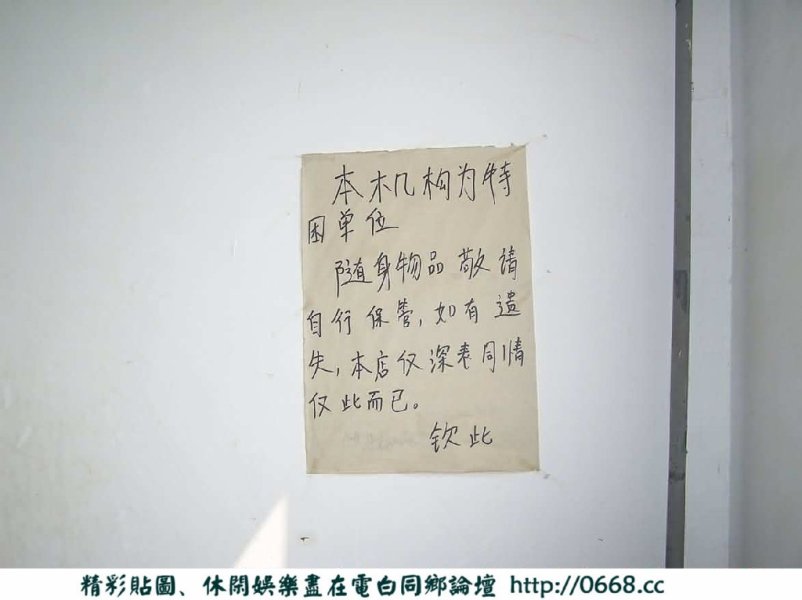 本机构为特
困单位
随身物品敬请
自行保管，如有遗
失，本店仅深表同情
仅此而已。
钦此
精彩貼圖、休閑娛樂盡在電白同鄉論壇 http://0668.cc